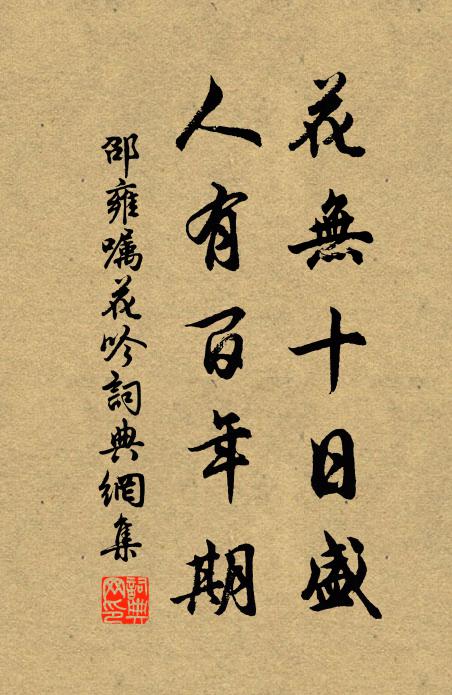 花無十日盛
人有百年期
邵雍嘱花吟詞典網集
詞典網印